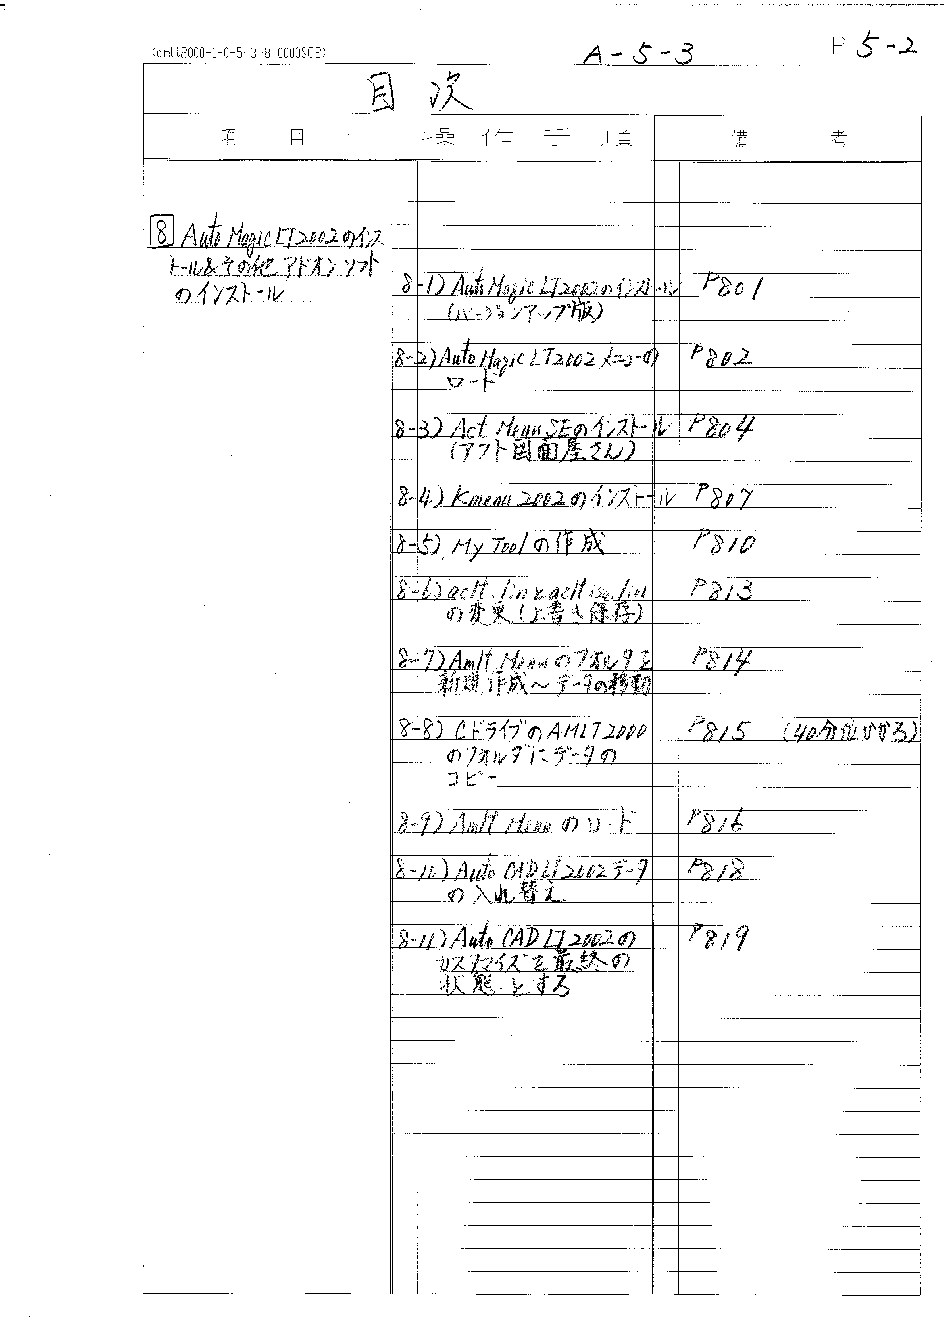 A-5-3
P 5-2
目次
項 目
操 作 手 順
備 考
8 Auto Magic LT2002のインス
トール&その他アドオンソフト
のインストール
8-1) Auto Magic LT2002のインストール P801
(バージョンアップ版)
8-2) Auto Magic LT2002メニューの P802
ロード
8-3) Act Menu SEのインストール P804
(アフト図面屋さん)
8-4) Kmenu 2002のインストール P807
8-5) My Toolの作成 P810
8-6) aclt.linとacltiso.lin P813
の変更(上書き保存)
8-7) Amlt Menuのフォルダを P814
新規作成～データの移動
8-8) CドライブのAMLT2000 P815 (40分位かかる)
のフォルダにデータの
コピー
8-9) Amlt Menuのロード P816
8-10) Auto CAD LT2002データ P818
の入れ替え
8-11) Auto CAD LT2002の P819
カスタマイズを最終の
状態とする